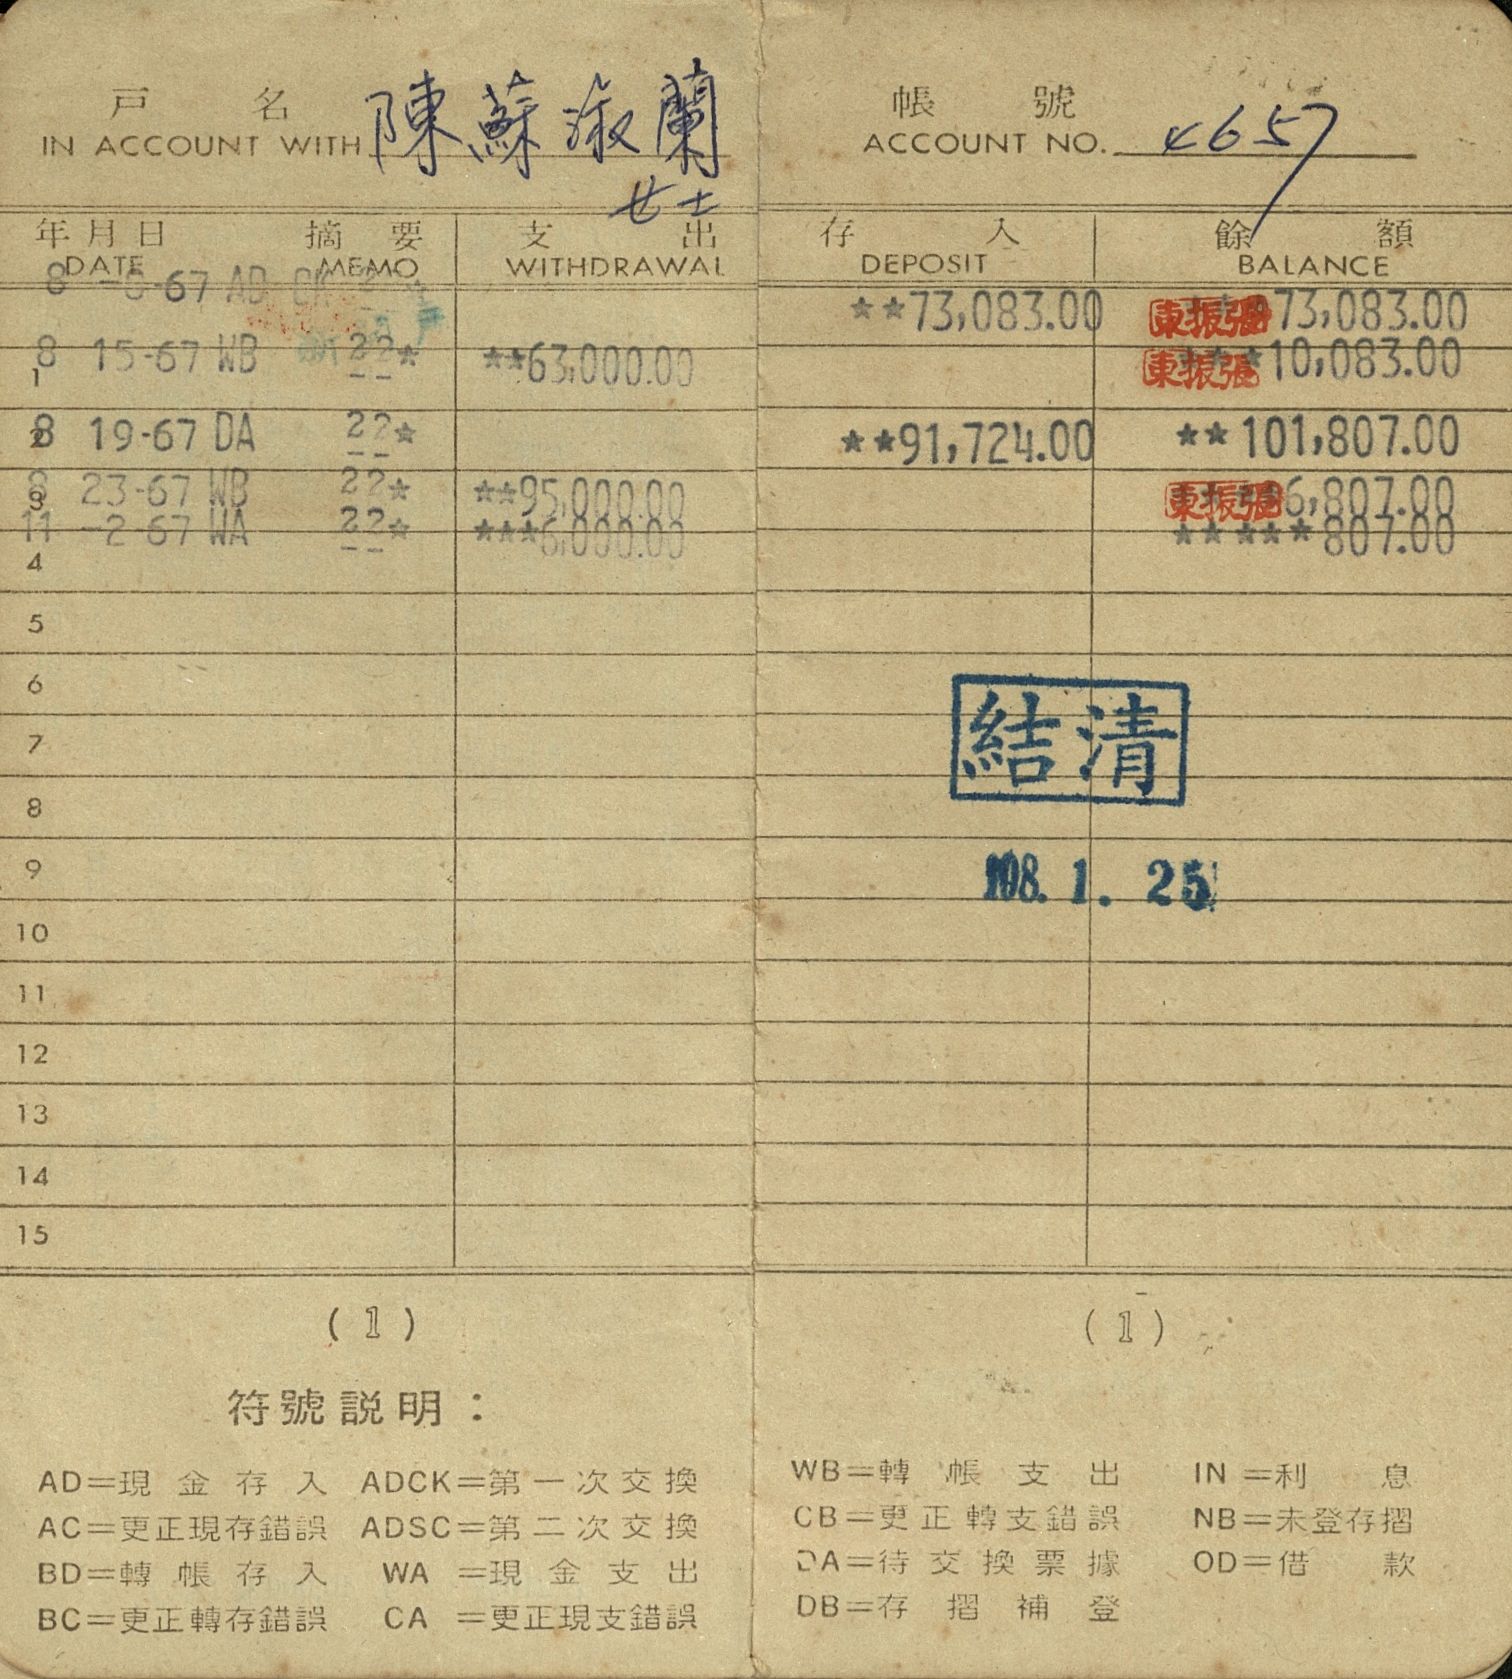 戶名 帳號
IN ACCOUNT WITH 陳蘇淑蘭 ACCOUNT NO. 4657
女士
年月日 摘要 支出 存入 餘額
DATE MEMO WITHDRAWAL DEPOSIT BALANCE
8 -67 AD CK **73,083.00 張振東 73,083.00
1 8 15-67 WB 22* **63,000.00 張振東 *10,083.00
2 8 19-67 DA 22* **91,724.00 **101,807.00
3 8 23-67 WB 22* **95,000.00 張振東 6,807.00
11 -2-67 WA 22* ***6,000.00 *****807.00
4
5
6
結清
7
8
9
108. 1. 25
10
11
12
13
14
15
(1) (1)
符號説明：
AD=現金存入 ADCK=第一次交換 WB=轉帳支出 IN=利息
AC=更正現存錯誤 ADSC=第二次交換 CB=更正轉支錯誤 NB=未登存摺
BD=轉帳存入 WA=現金支出 DA=待交換票據 OD=借款
BC=更正轉存錯誤 CA=更正現支錯誤 DB=存摺補登